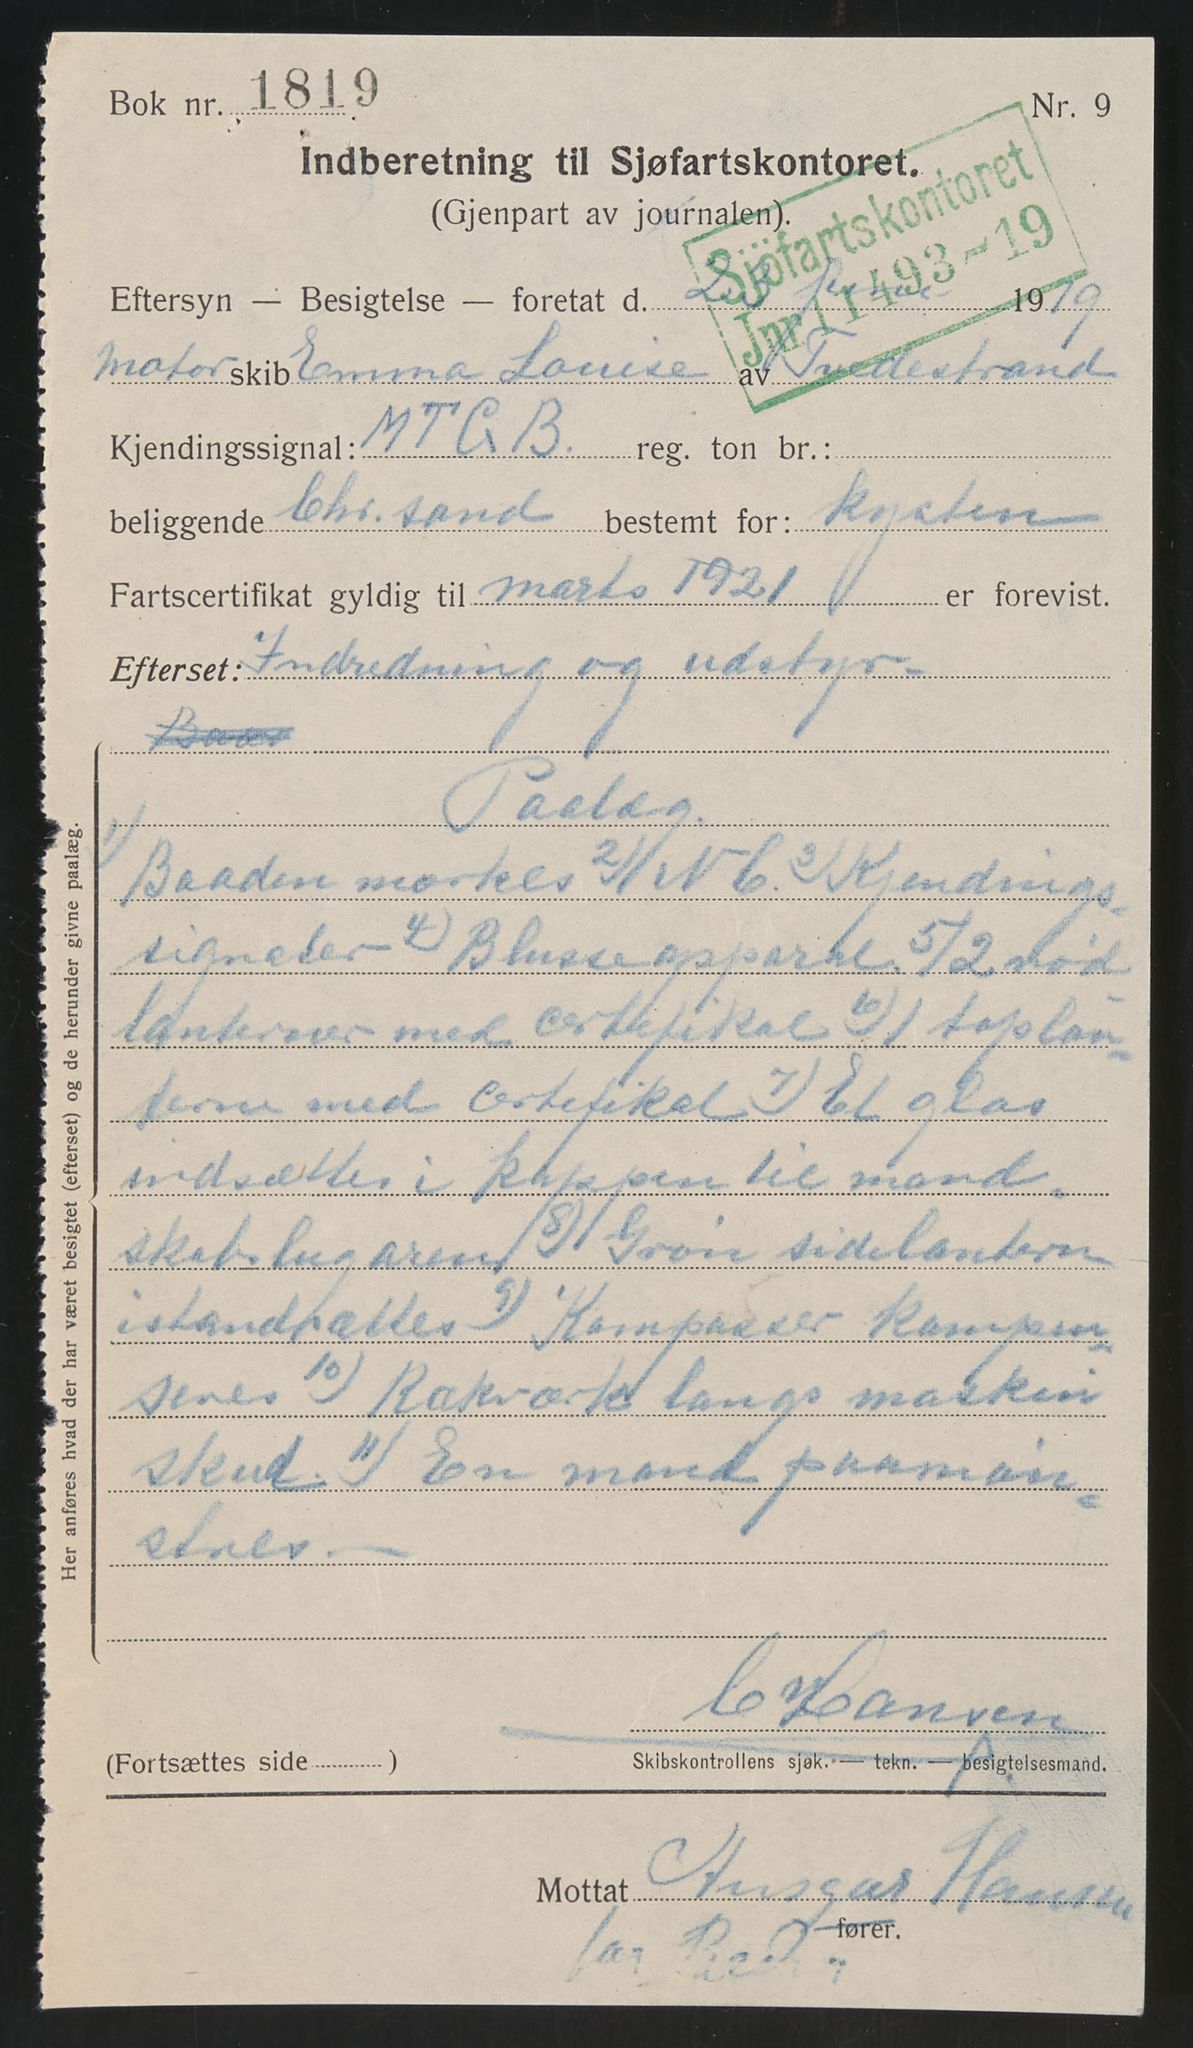 Bok nr. 1819
Nr. 9
Indberetning til Sjøfartskontoret.
(Gjenpart av journalen).
Sjöfartskontoret
Jnr 11493-19
Eftersyn — Besigtelse — foretat d. 23 1919
Motor skib Emma Louise av Tvedestrand
Kjendingssignal: MTGB. reg. ton br.:
beliggende Chr.sand bestemt for: kysten
Fartscertifikat gyldig til marts 1921 er forevist.
Efterset: Indredning og udstyr-
Paalæg.
1) Baaden mærkes 2) 1 N C. 3) Kjendings-
signaler 4) Blusseapparat. 5) 2 nød
lanterner med certefikat 6) 1 toplan-
terne med certefikat 7) Et glas
indsættes i kappen til mand-
skabslugaren 8) Grøn sidelantern
istandsættes 9) Kompasser kompen-
seres 10) Rækværk langs maskin
skut. 11) En mand paamøn-
stres. —
Her anføres hvad der har været besigtet (efterset) og de herunder givne paalæg.
C Hansen
(Fortsættes side ) Skibskontrollens sjøk. — tekn. — besigtelsesmand.
Mottat Ansgar Hansen
fører.